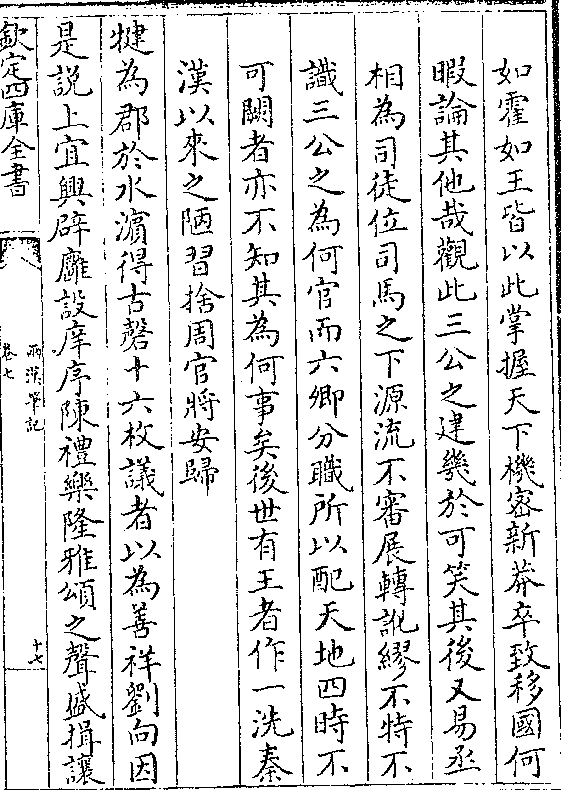 如霍如王皆以此掌握天下機密新莽卒致移國何
暇論其他哉觀此三公之建幾於可笑其後又易丞
相為司徒位司馬之下源流不審展轉訛繆不特不
識三公之為何官而六卿分職所以配天地四時不
可闕者亦不知其為何事矣後世有王者作一洗秦
漢以來之陋習捨周官將安歸
犍為郡於水濵得古磬十六枚議者以為善祥劉向因
是説上宜興辟廱設庠序陳禮樂隆雅頌之聲盛揖讓
欽定四庫全書
兩漢筆記
卷七
十七